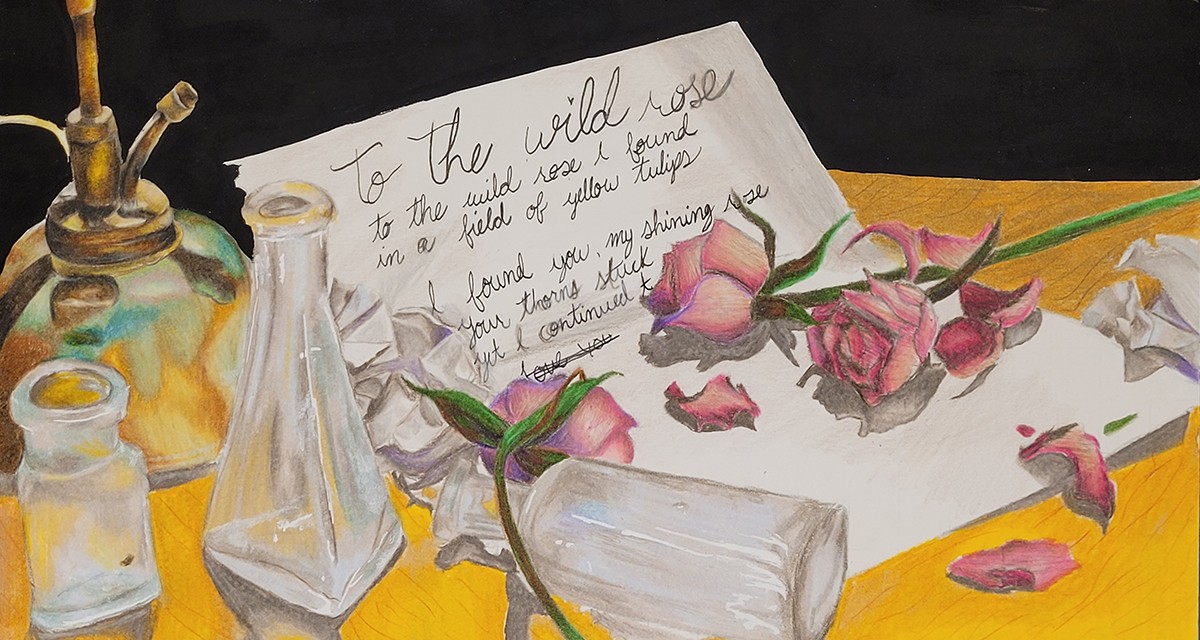 To the wild rose
to the wild rose i found
in a field of yellow tulips
I found you, my shining rose
your thorns stuck
yet I continued t
love you